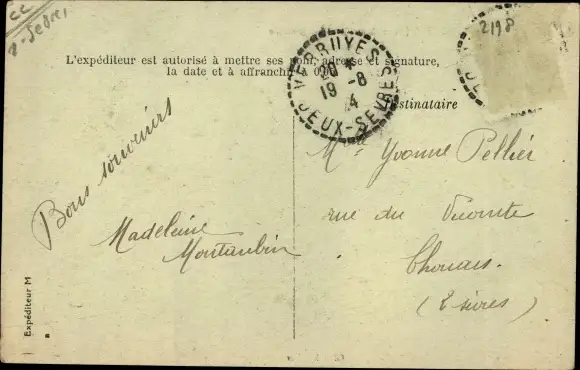 CC
2-Sèvres
2198
L'expéditeur est autorisé à mettre ses nom, adresse et signature,
la date et à affranchir à
VERRUYES
20 *
19 -8
24
DEUX-SEVRES
Destinataire
Bons souvenirs
Madeleine
Montaubin
Mlle Yvonne Pellier
rue du Vicomte
Thouars.
(2 sèvres)
Expéditeur M